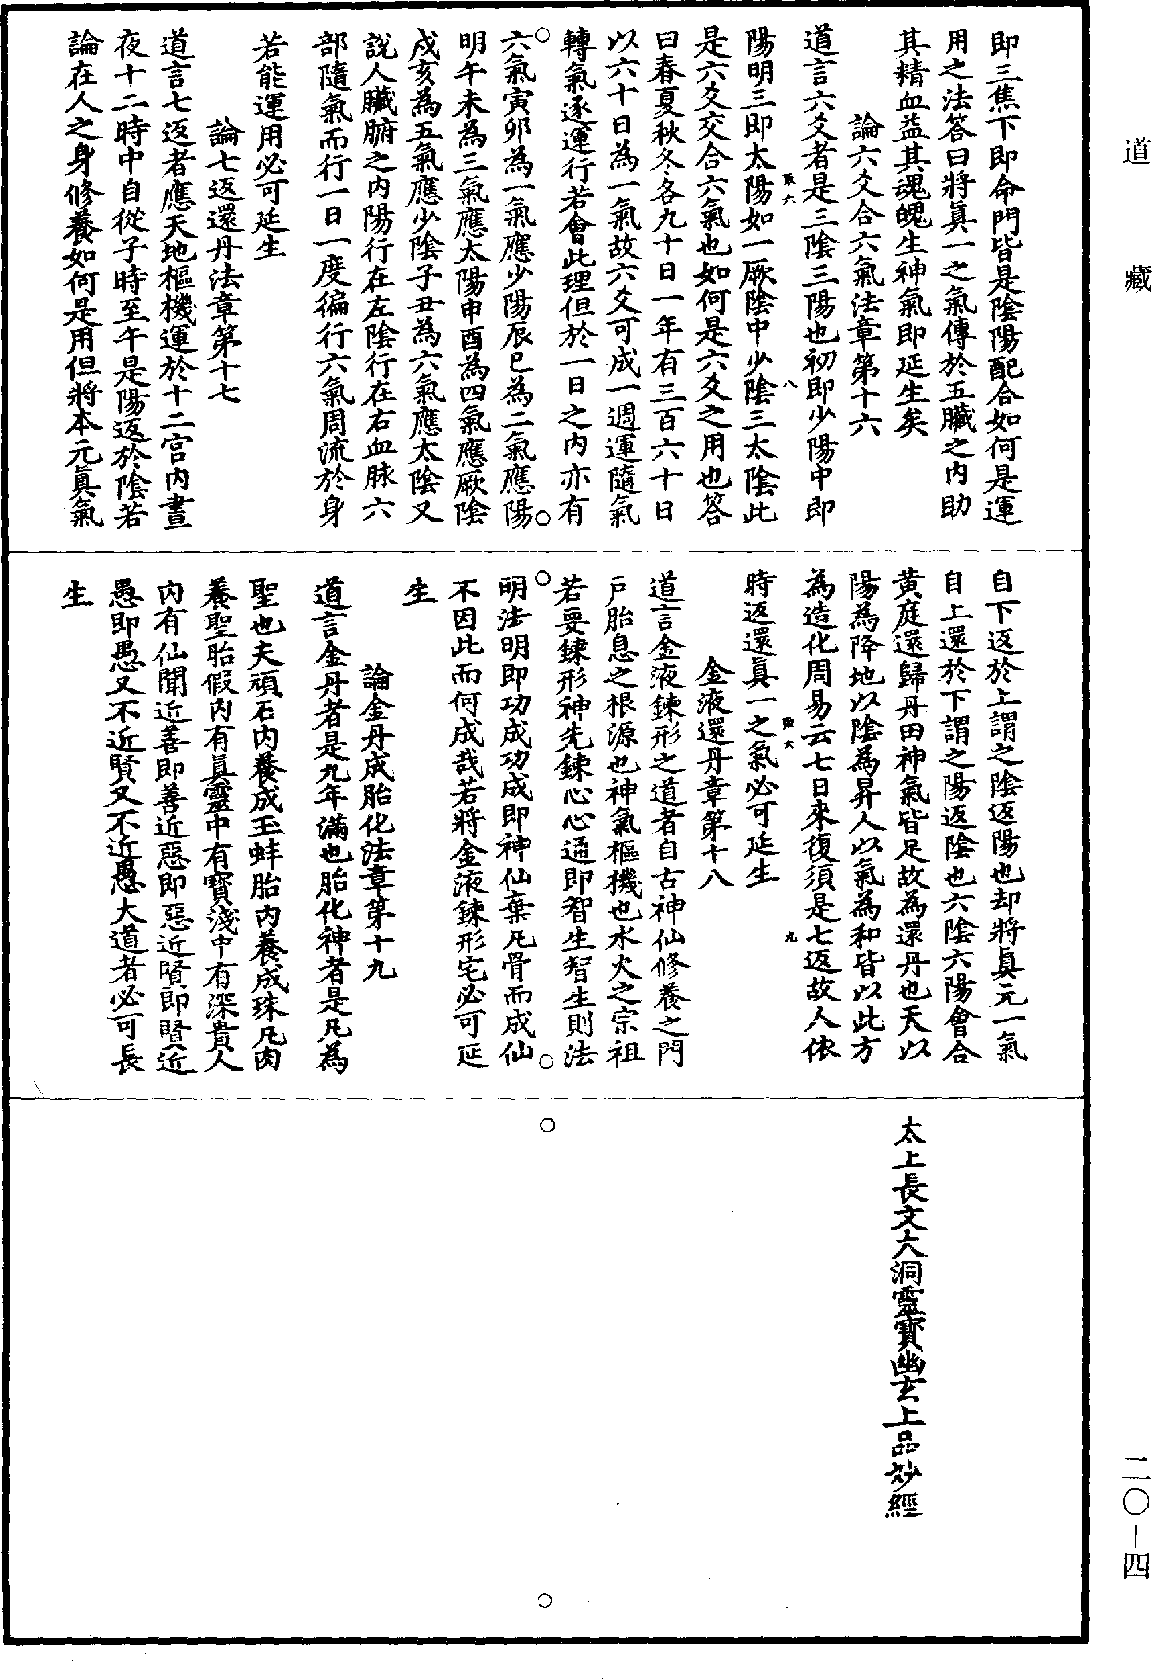 道藏
二〇—四
即三焦下即命門皆是陰陽配合如何是運
用之法答曰將眞一之氣傳於五臟之内助
其精血益其魂魄生神氣即延生矣
論六爻合六氣法章第十六
道言六爻者是三陰三陽也初即少陽中即
陽明三即太陽如一厥陰中少陰三太陰此
是六爻交合六氣也如何是六爻之用也答
曰春夏秋冬各九十日一年有三百六十日
以六十日為一氣故六爻可成一週運隨氣
轉氣逐運行若會此理但於一日之内亦有
六氣寅卯為一氣應少陽辰巳為二氣應陽
明午未為三氣應太陽申酉為四氣應厥陰
戌亥為五氣應少陰子丑為六氣應太陰又
說人臟腑之内陽行在左陰行在右血脉六
部隨氣而行一日一度徧行六氣周流於身
若能運用必可延生
論七返還丹法章第十七
道言七返者應天地樞機運於十二宫内晝
夜十二時中自從子時至午是陽返於陰若
論在人之身修養如何是用但將本元眞氣
自下返於上謂之陰返陽也却將眞元一氣
自上還於下謂之陽返陰也六陰六陽會合
黄庭還歸丹田神氣皆足故為還丹也天以
陽為降地以陰為昇人以氣為和皆以此方
為造化周易云七日來復須是七返故人依
時返還眞一之氣必可延生
金液還丹章第十八
道言金液鍊形之道者自古神仙修養之門
戶胎息之根源也神氣樞機也水火之宗祖
若要鍊形神先鍊心心通即智生智生則法
明法明即功成功成即神仙棄凡骨而成仙
不因此而何成哉若將金液鍊形宅必可延
生
論金丹成胎化法章第十九
道言金丹者是九年滿也胎化神者是凡為
聖也夫頑石内養成玉蚌胎内養成珠凡肉
養聖胎假内有眞靈中有寳淺中有深貴人
内有仙聞近善即善近惡即惡近賢即賢近
愚即愚又不近賢又不近愚大道者必可長
生
太上長文大洞靈寳幽玄上品妙經